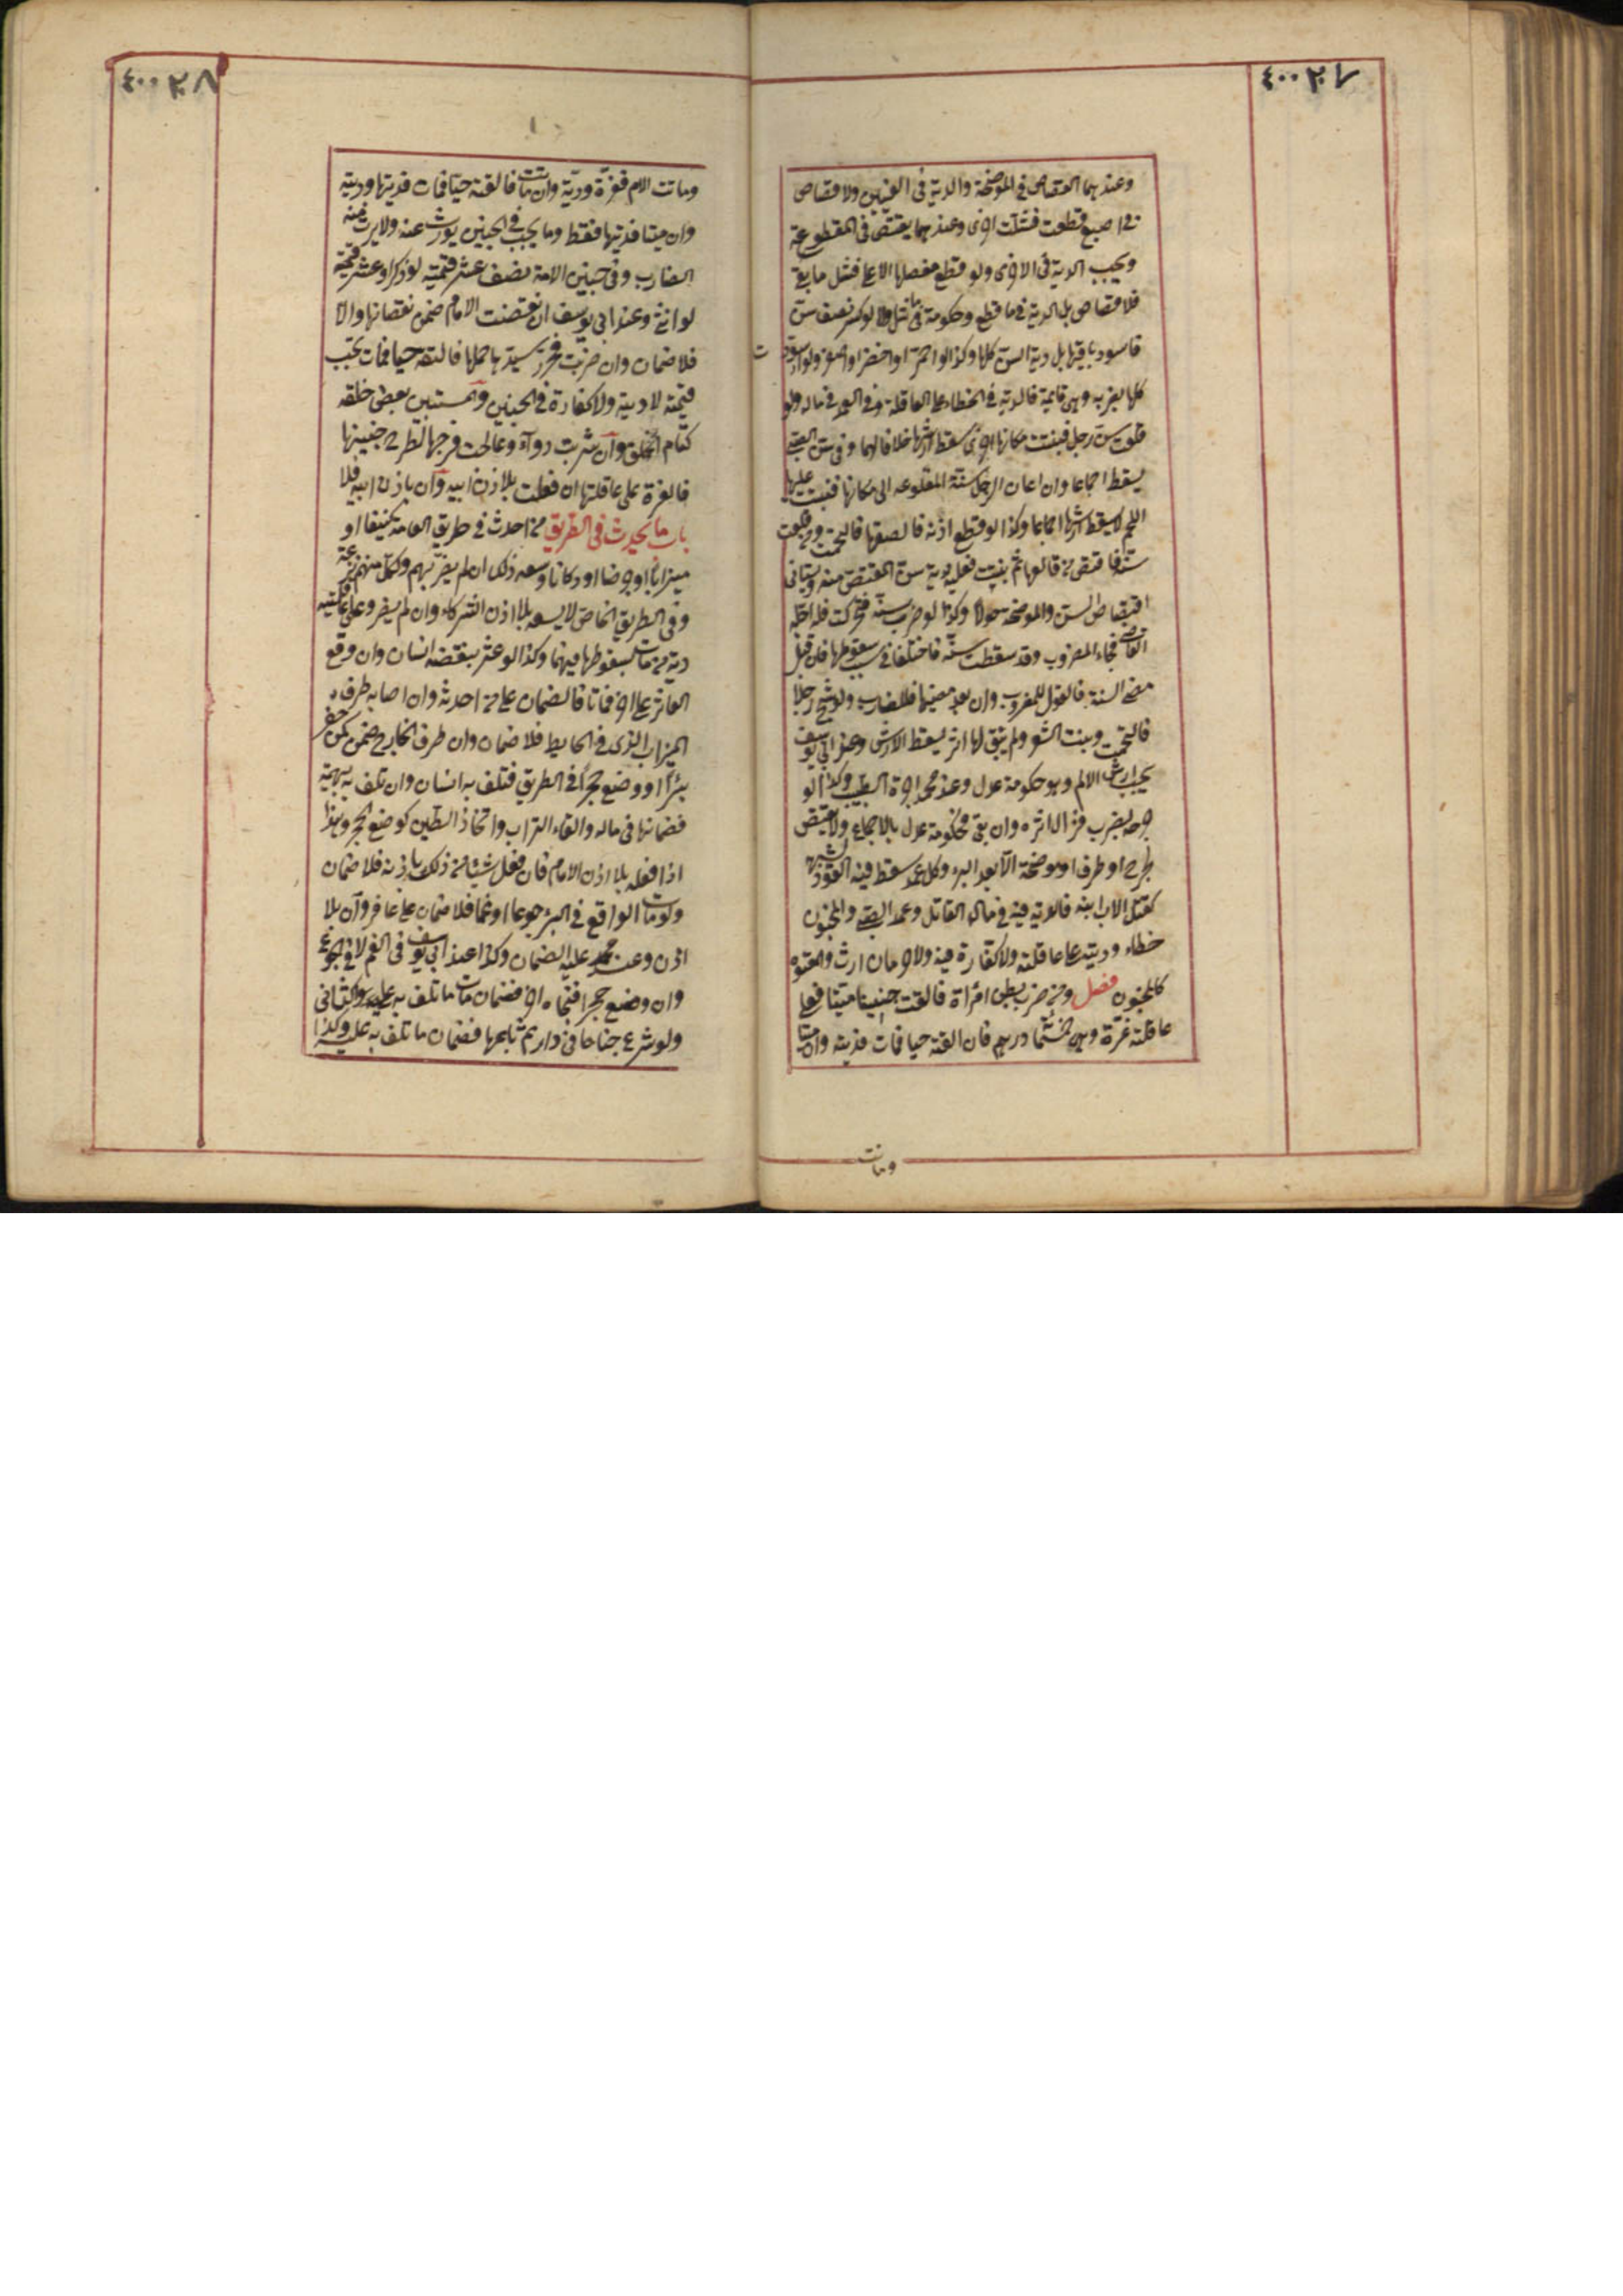 ٤٠٠٢٠٧
وعندهما القصاص فى الموضحة والدية فى العينين ولا قصاص
فى اصبع قطعت فشلت اخرى وعندهما يقتص فى المقطوعة
ويجب الدية فى الاخرى ولو قطع مفصلها الاعلى فشل ما بقى
فلا قصاص بل الدية فيما قطع وحكومة فيما شل ولا لو كسر نصف سن
فاسود باقيها بل دية السن كلها وكذا لو احمر او اخضر او اصفر ولو اسودت
كلها بضربه وهى قائمة فالدية فى الخطاء على العاقلة وفى العمد فى ماله ولو
قلعت سن رجل فنبتت مكانها اخرى سقط ارشها خلافا لهما وفى سن الصبى
يسقط اجماعا وان اعاد الرجل سنه المقلوعه الى مكانها فنبت عليها
اللحم لا يسقط ارشها اجماعا وكذا لو قطع اذنه فالصقها فالتحمت ومن قلعت
سنه فاقتص من قالعها ثم نبتت فعليه دية سن المقتص منه ويستانى
اقتصاص السن والموضحة حولا وكذا لو ضرب سنه فتحركت فلو اجله
القاضى فجاء المضروب وقد سقطت سنه فاختلفا فى سبب سقوطها فان قبل
مضى السنة فالقول للمضروب وان بعد مضيها فللضارب ولو شج رجلا
فالتحمت ونبت الشعر ولم يبق لها اثر يسقط الارش وعند ابى يوسف
يجب ارش الالم وهو حكومة عدل وعند محمد اجرة الطبيب وكذا لو
جرحه بضرب فزال اثره وان بقى فحكومة عدل بالاجماع ولا يقتص
لجرح او طرف او موضحة الا بعد البرء وكل عمد سقط فيه القود لشبهة
كقتل الاب ابنه فالدية فيه فى مال القاتل وعمد الصبى والمجنون
خطاء وديته على عاقلته ولا كفارة فيه ولا حرمان ارث والمعتوه
كالمجنون فصل ومن ضرب بطن امرأة فالقت جنينا ميتا فعلى
عاقلته غرة وهى خمسمائة درهم فان القته حيا فمات فدية وان ميتا
وماتت
٤٠٠٢٠٨
وماتت الام فغرة ودية وان ماتت فالقته حيا فمات فديتها وديته
وان ميتا فديتها فقط وما يجب فى الجنين يورث عنه ولا يرث منه
الضارب وفى جنين الامة نصف عشر قيمته لو ذكرا وعشر قيمته
لو انثى وعند ابى يوسف ان نقصت الام ضمن نقصانها والا
فلا ضمان وان ضربت فحرر سيدها حملها فالقته حيا فمات تجب
قيمته لا ديته ولا كفارة فى الجنين والمستبين بعض خلقه
كتام الخلق وان شربت دواء وعالجت فرجها لطرح جنينها
فالغرة على عاقلتها ان فعلت بلا اذن ابيه وان باذن ابيه فلا
باب ما يحدث فى الطريق من احدث فى طريق العامة كنيفا او
ميزابا او جرصنا او دكانا وسعه ذلك ان لم يضر بهم ولكل منهم نزعه
وفى الطريق الخاص لا يسعه بلا اذن الشركاء وان لم يضر وعلى عاقلته
دية من مات بسقوطها فيهما وكذا لو عثر بنقضه انسان وان وقع
العاثر على اخر فماتا فالضمان على من احدثه وان اصابه طرف
الميزاب الذى فى الحايط فلا ضمان وان طرف الخارج ضمن كمن حفر
بئرا او وضع حجرا فى الطريق فتلف به انسان وان تلف به بهيمة
فضمانها فى ماله والقاء التراب واتخاذ الطين كوضع الحجر وهذا
اذا فعله بلا اذن الامام فان فعل شيئا من ذلك باذنه فلا ضمان
ولو مات الواقع فى البئر جوعا او غما فلا ضمان على حافر وان بلا
اذن وعند محمد عليه الضمان وكذا عند ابى يوسف فى الغم لا فى الجوع
وان وضع حجرا فنحاه اخر فضمان ما تلف به على الثانى
ولو شرع جناحا فى دار ثم باعها فضمان ما تلف به عليه وكذا